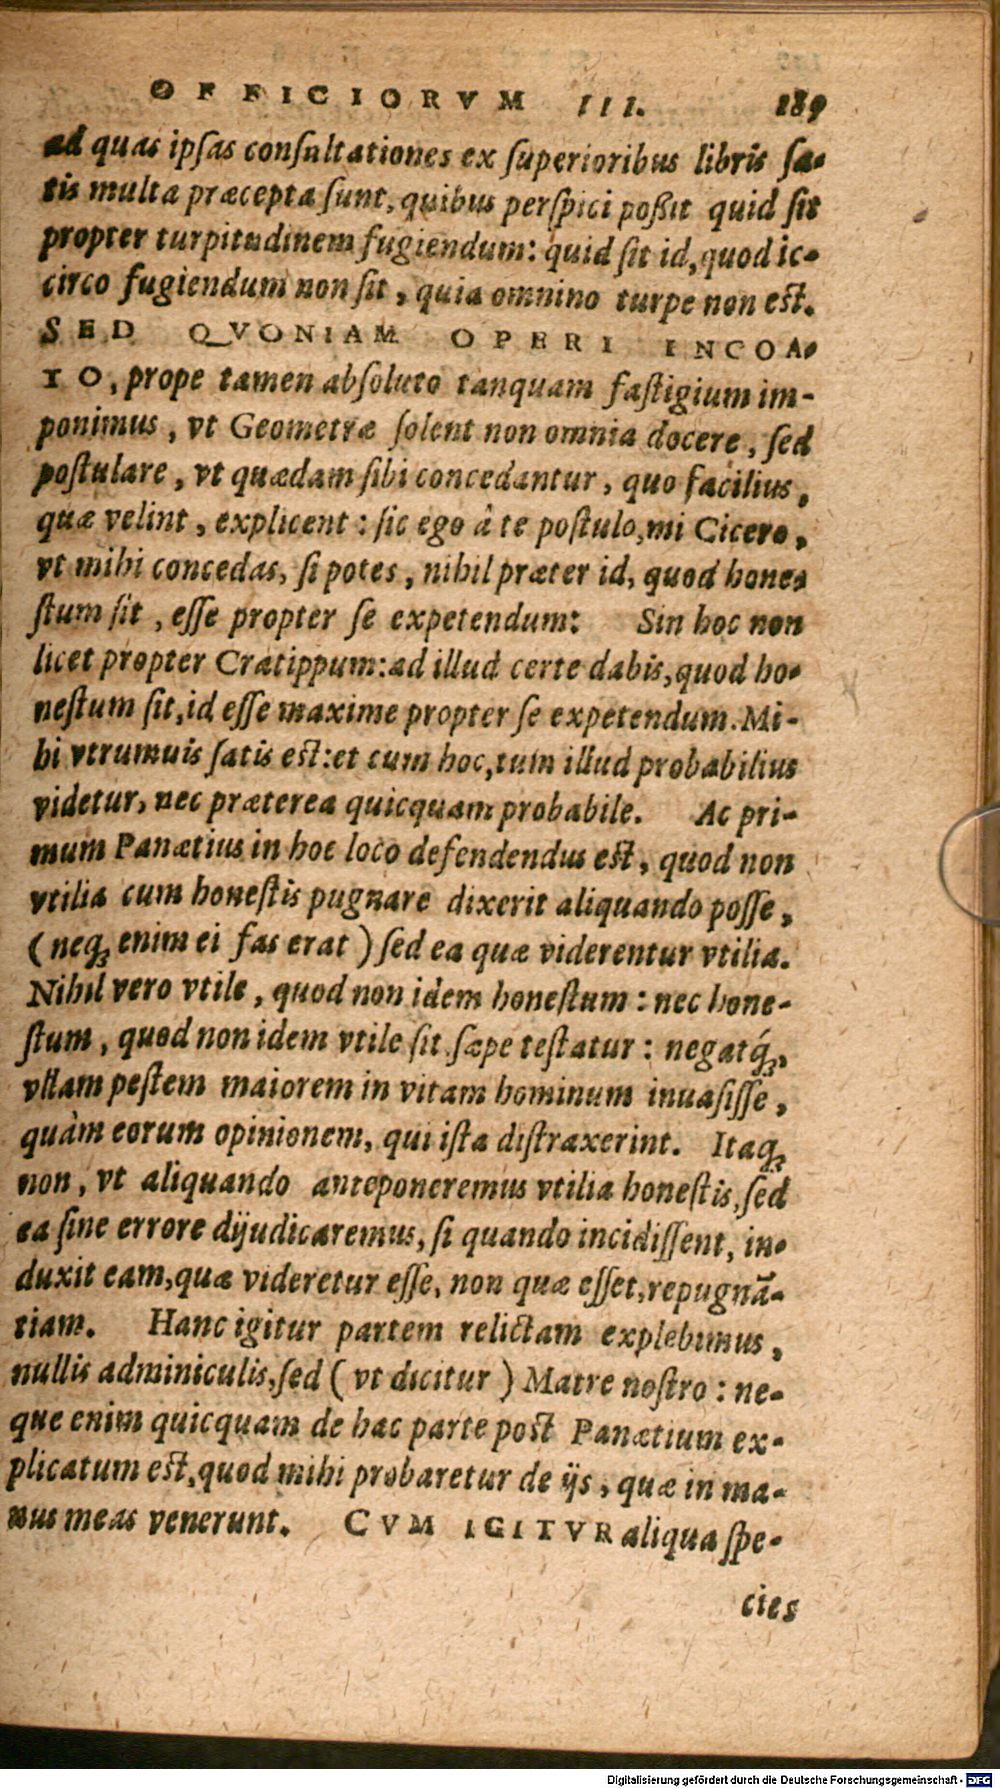 OFFICIORVM III. 189
ad quas ipſas conſultationes ex ſuperioribus libris ſa-
tis multa præcepta ſunt, quibus perſpici poßit quid ſit
propter turpitudinem fugiendum: quid ſit id, quod ic-
circo fugiendum non ſit, quia omnino turpe non eſt.
SED QVONIAM OPERI INCOA-
TO, prope tamen abſoluto tanquam faſtigium im-
ponimus, vt Geometræ ſolent non omnia docere, ſed
poſtulare, vt quædam ſibi concedantur, quo facilius,
quæ velint, explicent: ſic ego à te poſtulo, mi Cicero,
vt mihi concedas, ſi potes, nihil præter id, quod hone-
ſtum ſit, eſſe propter ſe expetendum: Sin hoc non
licet propter Cratippum: ad illud certe dabis, quod ho-
neſtum ſit, id eſſe maxime propter ſe expetendum. Mi-
hi vtrumuis ſatis eſt: et cum hoc, tum illud probabilius
videtur, nec præterea quicquam probabile. Ac pri-
mum Panætius in hoc loco defendendus eſt, quod non
vtilia cum honeſtis pugnare dixerit aliquando poſſe,
(neq; enim ei fas erat) ſed ea quæ viderentur vtilia.
Nihil vero vtile, quod non idem honeſtum: nec hone-
ſtum, quod non idem vtile ſit ſæpe teſtatur: negatq́;,
vllam peſtem maiorem in vitam hominum inuaſiſſe,
quàm eorum opinionem, qui iſta diſtraxerint. Itaq;
non, vt aliquando anteponeremus vtilia honeſtis, ſed
ea ſine errore dijudicaremus, ſi quando incidiſſent, in-
duxit eam, quæ videretur eſſe, non quæ eſſet, repugnā-
tiam. Hanc igitur partem relictam explebimus,
nullis adminiculis, ſed (vt dicitur) Matre noſtro: ne-
que enim quicquam de hac parte poſt Panætium ex-
plicatum eſt, quod mihi probaretur de ijs, quæ in ma-
nus meas venerunt. CVM IGITVR aliqua ſpe-
cies
Digitalisierung gefördert durch die Deutsche Forschungsgemeinschaft - DFG